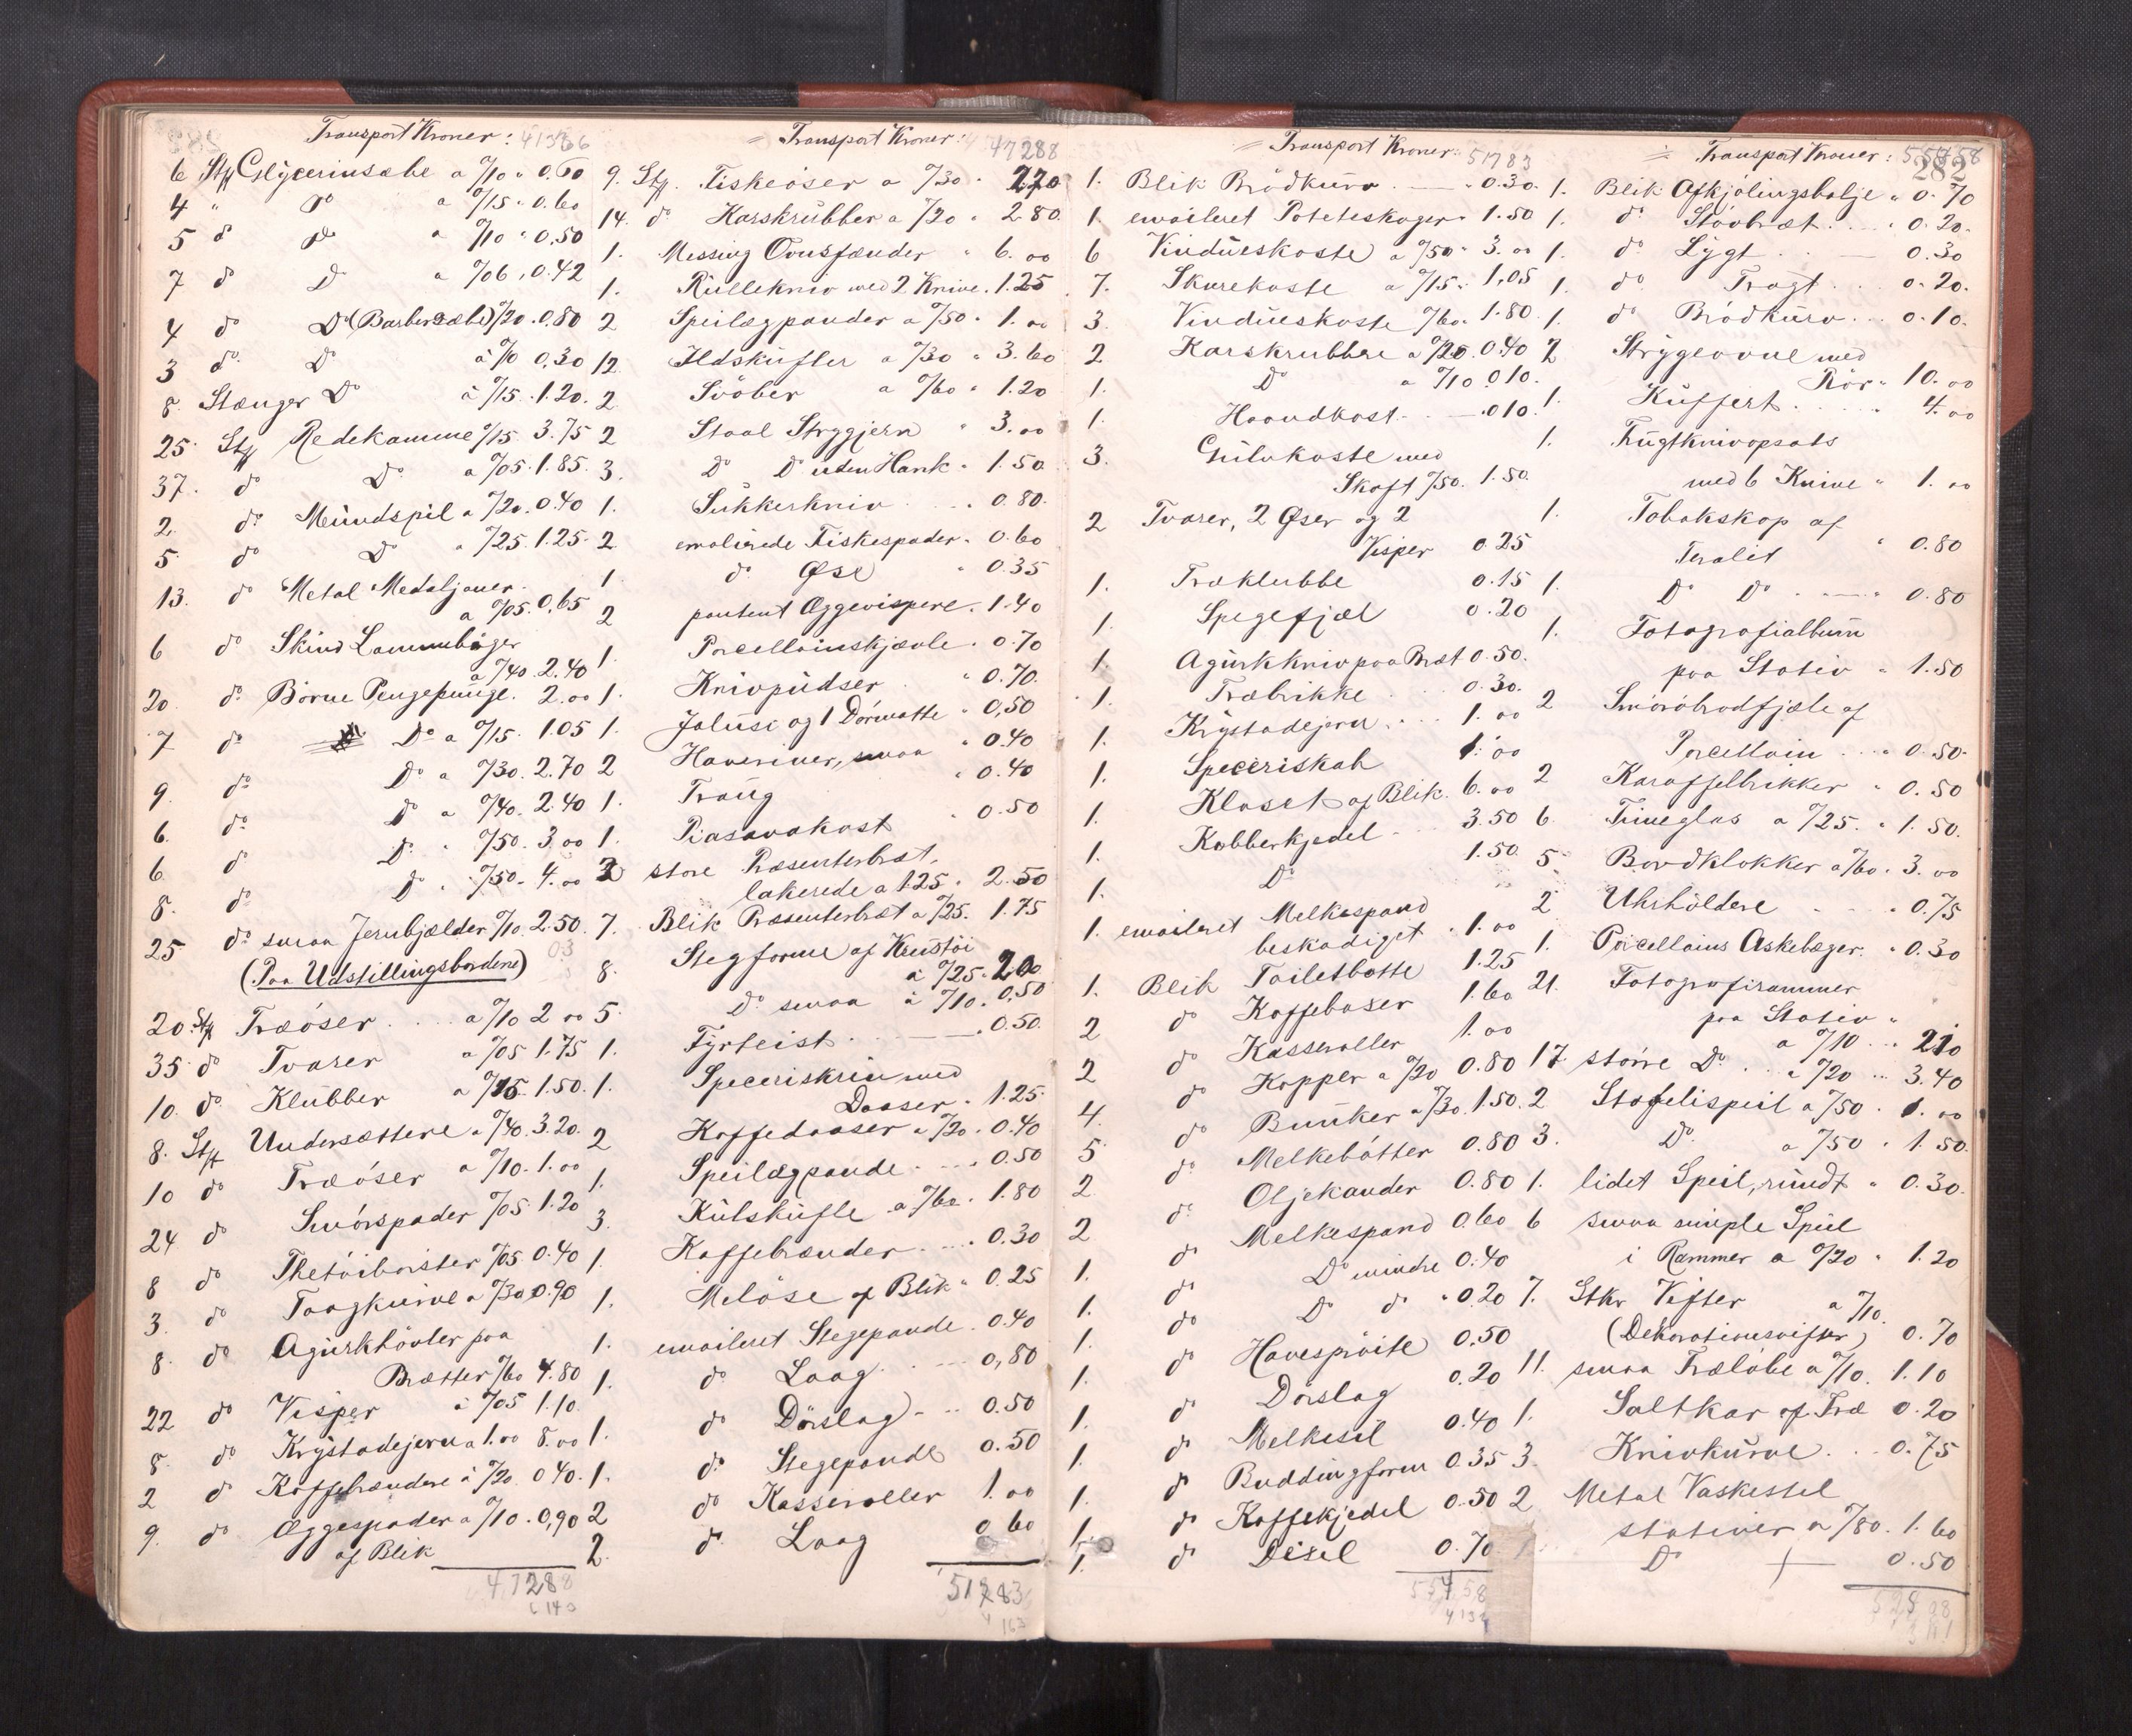 Transport Kroner: 41366
6 Stk Glÿcerinsæbe a 0/10 " 0.60
4 " Do a 0/15 " 0.60
5 do Do a 0/10 " 0,50
7 do Do a 0/06 " 0.42
4 do Do (Barbersæbe) 0/20 . 0,80
3 do Do a 0/10 0,30
8. Stænger Do a 0/15 . 1.20.
25 Stk Redekamme 0/15 3.75
37. do Do a 0/05 . 1.85.
2. do Mŭndspil a 0/20 . 0.40
5. do Do a 0/25 1.25
13. do Metal Medaljoner.
a 0/05. 0,65
6 do Skind Lommebøger
a 0/40. 2.40
20 do Børne Pengepŭnge. 2.00
7 do Do a 0/15. 1.05
9. do Do a 0/30. 2.70
6. do Do a 0/40. 2.40
6. do Do " 0/50. 3.00
8. do Do " 0/50. 4.00
25 do smaa Jernbjælder 0/10. 2.50
(Paa Udstillingsbordene)
20 Stk Træøser a 0/10 2 00
35 do Tvarer a 0/05 1.75
10. do Klŭbber a 0/15 1.50.
8. Stk Undersættere a 0/40. 3.20.
10 do Træøser a 0/10. 1.00
24 do Smørspader 0/05. 1.20
8 do Thetøibrister 0/05 0.40
3. do Taagkŭrve a 0/30 0.90
8. do Agŭrkhøvler paa
Brætter 0/60 4.80
22 do Visper a 0/05 1.10.
8. do Krÿstadejern a 1.00 8.00
2 do Kaffebrændere a 0/20. 0 40.
9. do Æggespader a 0/10. 0,90
af Blik
47288
Transport Kroner: 47288
9. Stk. Fiskeøser a 0/30 . 2.70
14. do Karskrŭbber a 0/20 . 2.80.
1. Messing Ovnsfænder " 6.00
1. Rŭllekniv med 2 Knive. 1.25
2 Speilægpander a 0/50 . 1.00
12 Ildskŭfler a 0/30 . 3.60
2. Svøber a 0/60 . 1.20
2 Staal Strygjern " 3.00
3. Do Do uden Hank . 1.50.
1. Sŭkkerkniv . 0.80.
2. emalierede Fiskespader . 0.60
1 do Øse " 0.35
2 pantent Æggevispere . 1.40
1. Porcellainskjævle . 0.70
1. Knivpŭdser " 0.70.
1. Jalŭsi og 1 Dørmatte " 0,50
2 Haveriver, smaa " 0.40
1. Traŭg " 0.40
1. Piasavakost . 0.50
2 store Præsenterbræt,
lakerede a 1.25 . 2.50
7. Blik Præsenterbræt a 0/25. 1.75
8. Stegforme af Krustøi
a 0/25 . 2.00
5. Do smaa a 0/10. 0,50
1. Fÿrteist . 0.50.
1. Speceriskrin med
Daaser . 1.25.
2 Kaffedaaser a 0/20 . 0.40
1. Speilægpande . 0.50
3. Kŭlskŭfle a 0/60 . 1.80
1. Kaffebrænder . 0.30
1. Meløse af Blik " 0.25
1. emaileret Stegepande . 0.40
1. do Laag 0,80
1. do Dørslag 0.50
1. do Stegepande 0.50
2 do Kasseroller 1.00
2. do Laag 0.60
51783
Transport Kroner: 51783
1. Blik Brødkŭrv . 0.30.
1. emaileret Poteteskoger . 1.50
6 Vindŭeskoste a 0/50 . 3.00
7. Skurekoste a 0/15 . 1,05
3. Vindŭeskoste 0/60. 1.80
2. Karskrubbere a 0/20. 0.40
1. Do a 0/10 0 10.
1. Haandkost . 0 10
3. Gŭlvkoste med
Skaft 0/50. 1.50.
2 Tvarer, 2 Øser og 2
Visper 0.25
1. Træklubbe 0.15
1. Spegefjæl 0.20
1. Agŭrkkniv paa Bræt 0.50.
1. Træbrikke 0.30.
1. Krÿstadejern 1.00
1. Speceriskab 1.00
1. Kloset af Blik 6.00
1. Kobberkjedel 3.50
1. Do 1.50.
1. emaileret Melkespand
beskadiget . 1.00
1. Blik Toiletbøtte 1.25
2 do Kaffebøser 1.60
2 do Kasseroller 1.00
4. do Kopper a 0/20 0.80
5 do Bunker a 0/30. 1.50.
2. do Melkebøtter 0.80
2 do Oljekander 0.80
1. do Melkespand 0.60
1. do Do mindre 0.40
1. do Do do " 0.20
1. do Havesprøite 0.50
1. do Dørslag 0.20
1. do Melkesil 0.40
1. do Buddingform 0.35
1. do Kaffekjedel 0.50
1. do Disel 0.70
55458
Transport Kroner: 55458
282
1. Blik Afkjølingsbalje " 0.70
1. do Støvbræt . 0.20.
1. do Lÿgt 0.30
1. do Tragt 0.20.
1. do Brødkŭrv 0.10.
2 Strÿgeovne med
Rør " 10.00
1. Kŭffert 4.00
1. Frŭgtknivopsats
med 6 Knive " 1.00
1. Tobakskop af
Teralit " 0.80
1. Do Do 0.80
1. Fotografialbŭm
paa Stativ " 1.50
2 Smørbrødfjæle af
Porcellain . 0.50.
2 Karaffelbrikker " 0.50
6. Timeglas a 0/25. " 1.50.
5 Bordklokker a 0/60 . 3.00
2 Uhrholdere . 0.75
1. Porcellains Askebæger. . 0.30
21. Fotografirammer
paa Stativ "
a 0/10 2.10
17 større Do a 0/20 3.40
2 Stafelispeil a 0/50 . 1.00
3. Do a 0/50 . 1.50.
1. lidet Speil, rŭndt " 0.30.
6 smaa simple Speil
i Rammer a 0/20 " 1.20
7. Stkr Vifter a 0/10.
(Dekorationsvifter) 0.70
11. smaa Træløbe a 0/10. 1.10
1. Saltkar af Træ 0.20
3. Knivkŭrve 0.75
2 Metal Vaskestel
stativer a 0/80. 1.60
Do 0.50